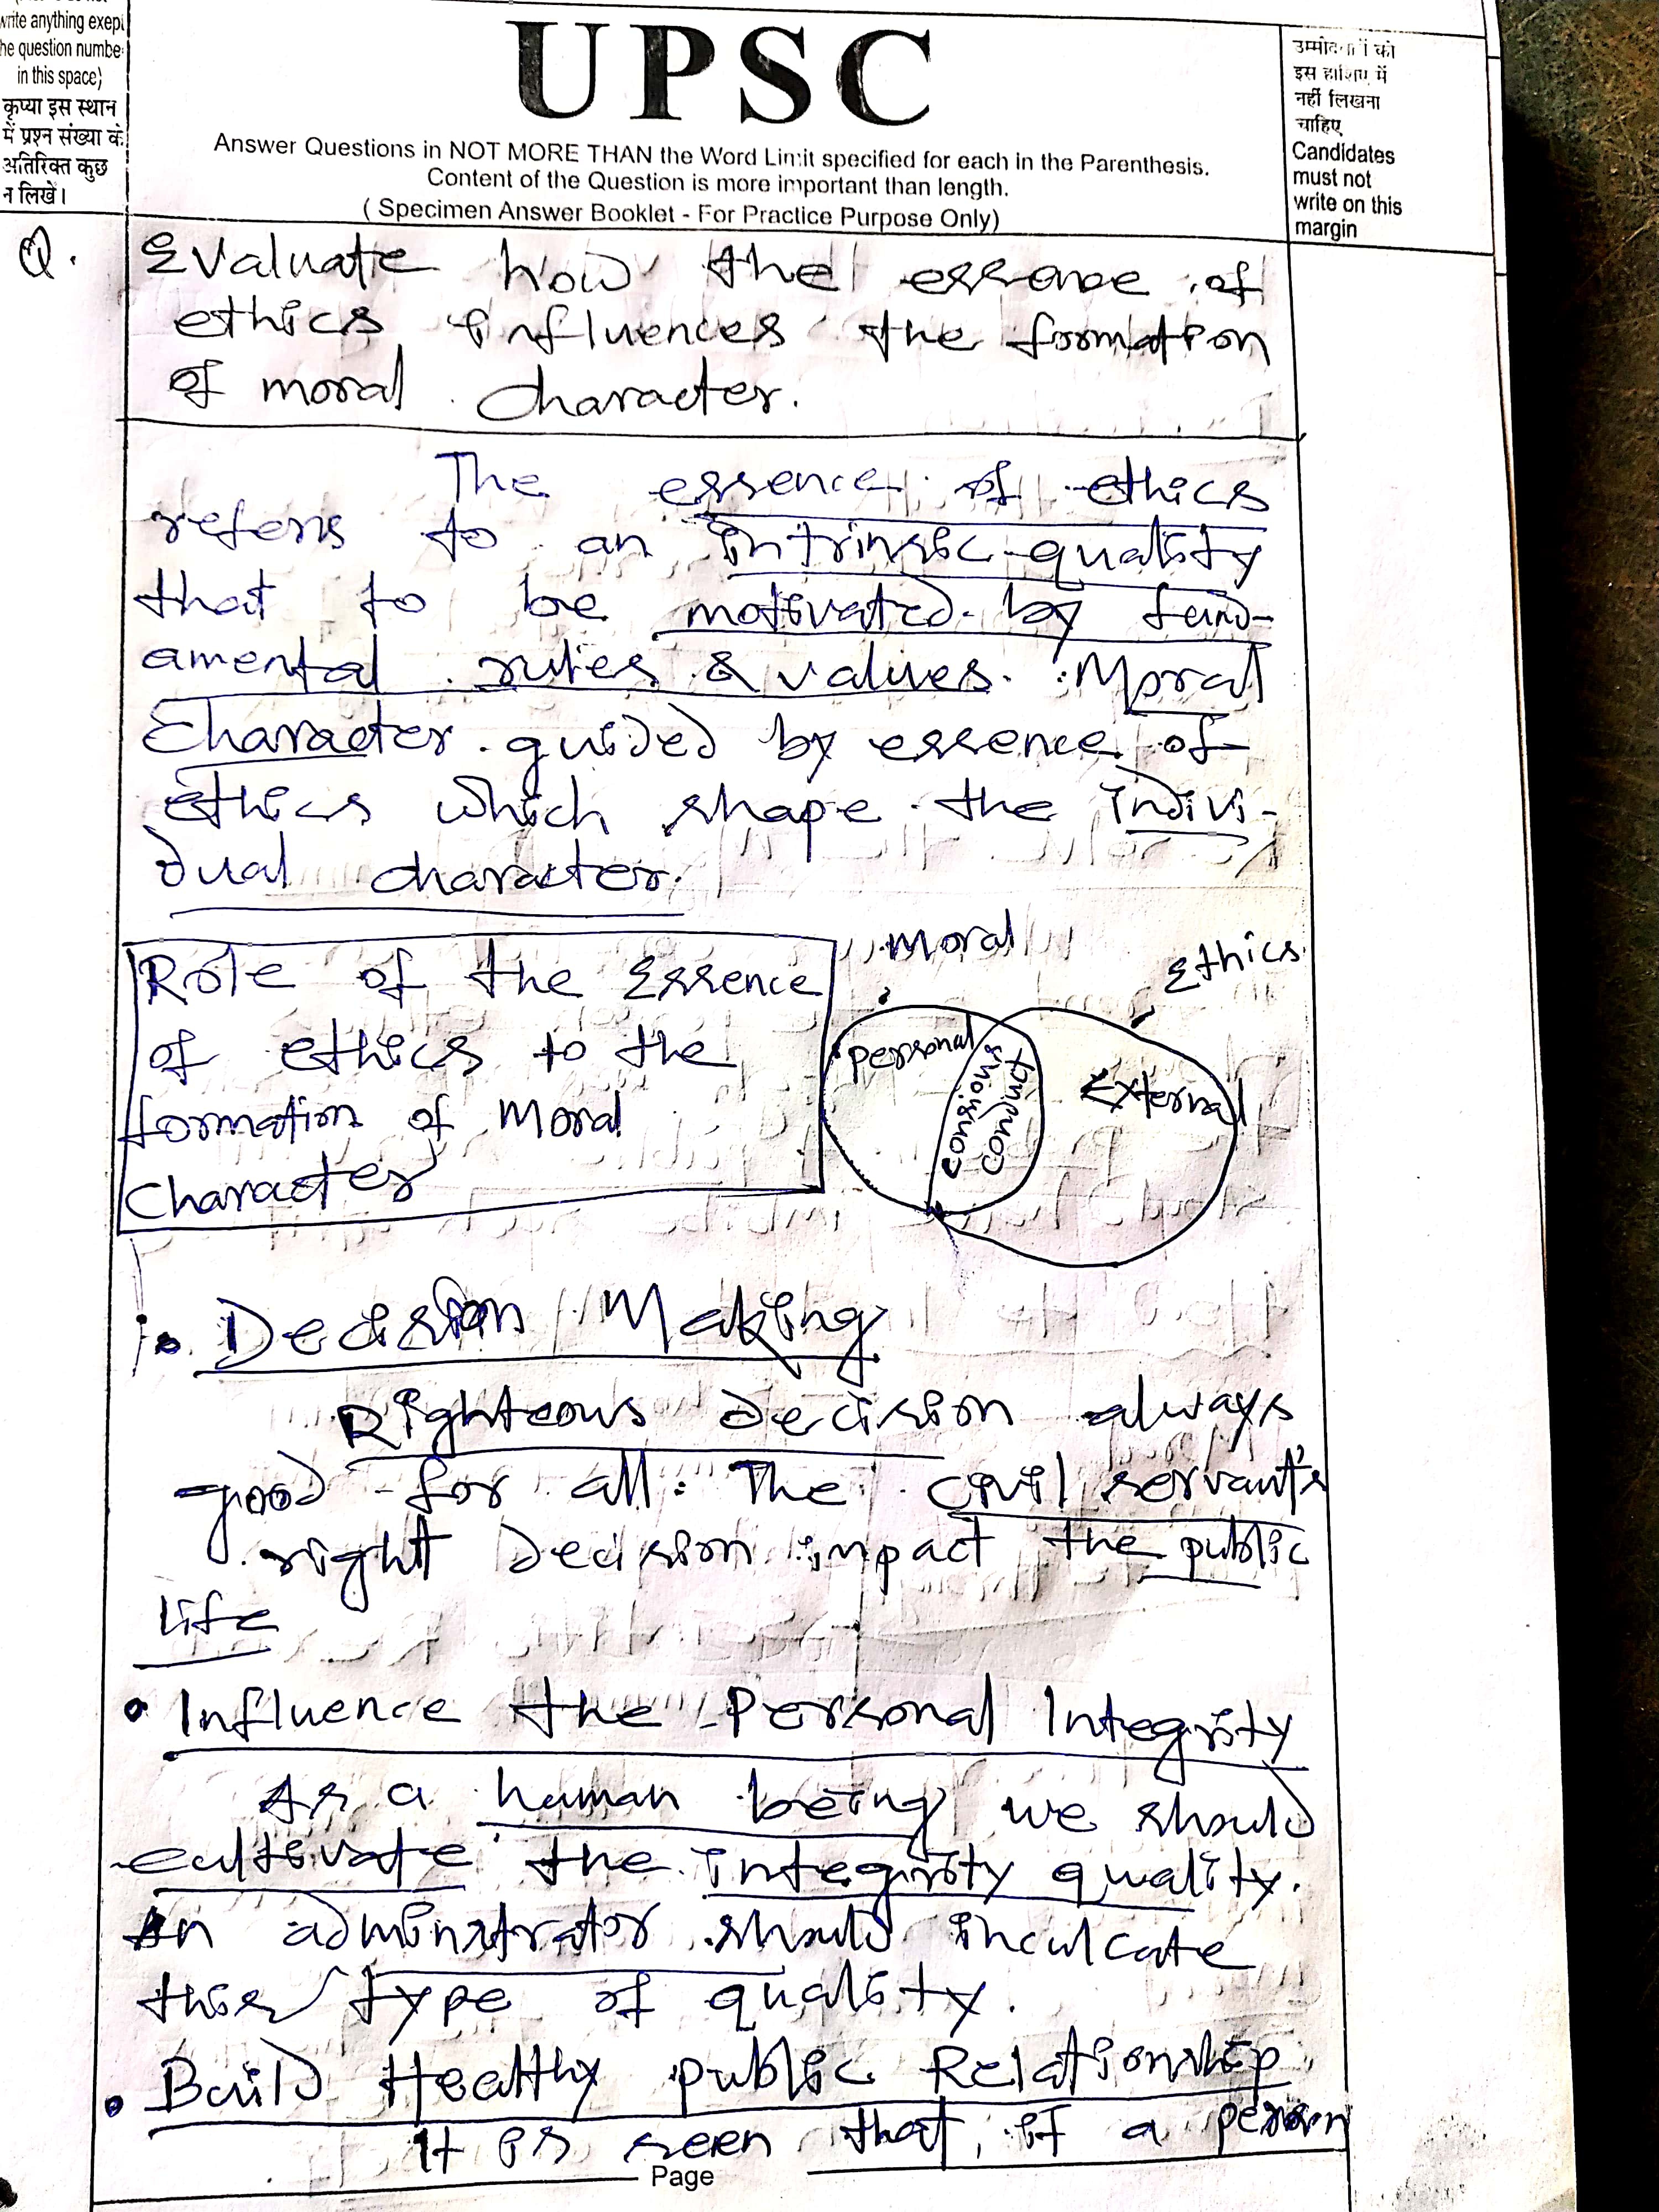 write anything exept
he question numbe
in this space)
कृप्या इस स्थान
में प्रश्न संख्या के
अतिरिक्त कुछ
न लिखें।
UPSC
Answer Questions in NOT MORE THAN the Word Limit specified for each in the Parenthesis.
Content of the Question is more important than length.
( Specimen Answer Booklet - For Practice Purpose Only)
उम्मीदवारों को
इस हाशिए में
नहीं लिखना
चाहिए
Candidates
must not
write on this
margin
Q. Evaluate how the essence of
ethics influences the formation
of moral character.
The essence of ethics
refers to an intrinsic quality
that to be motivated by fund-
amental rules & values. Moral
Character guided by essence of
ethics which shape the indivi-
dual character.
Role of the Essence
of ethics to the
formation of Moral
Character
Moral
Ethics
personal
conscious
conduct
External
Decision Making
Righteous decision always
good for all. The civil servant's
right decision impact the public
life
• Influence the Personal Integrity
As a human being we should
cultivate the integrity quality.
An administrator should inculcate
this type of quality.
• Build Healthy public Relationship
It is seen that, if a person
Page